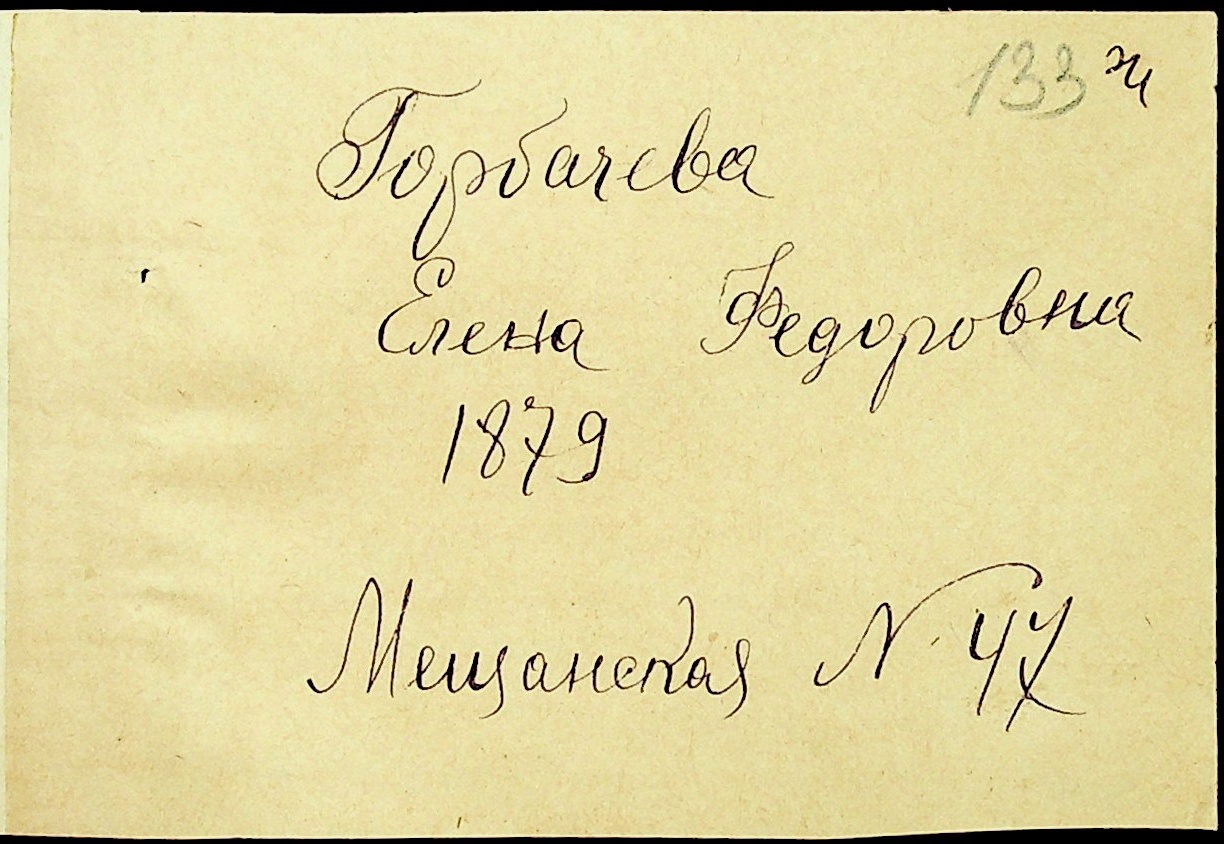 133 ж
Горбачева
Елена Федоровна
1879
Мещанская N 47